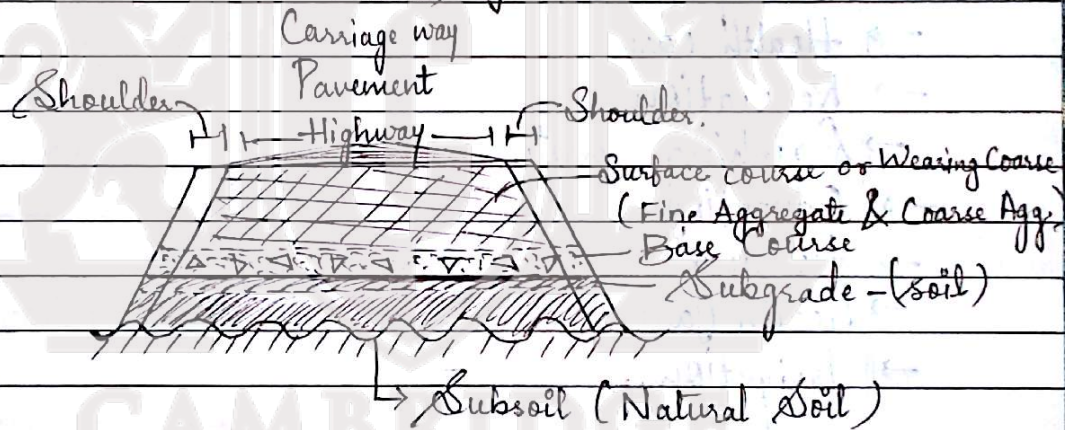 Carriage way
Pavement
Shoulder
Highway
Shoulder.
Surface course or Wearing Coarse
(Fine Aggregate & Coarse Agg.)
Base Course
Subgrade - (soil)
Subsoil (Natural Soil)
CAMB